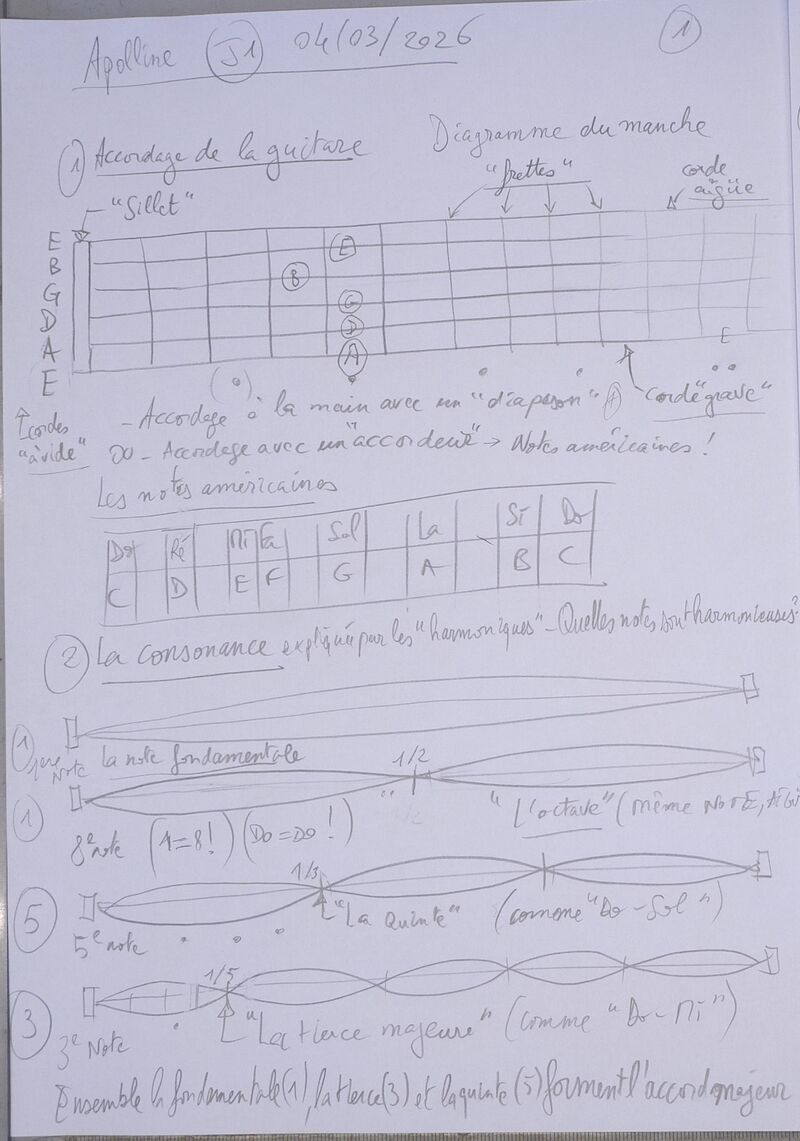 Apolline J1 04/03/2026 1
1 Accordage de la guitare Diagramme du manche
"Sillet" "frettes" corde aigüe
E
B
G
D
A
E
E
B
G
D
A
E
cordes "à vide"
- Accordage à la main avec un "diapason" corde "grave"
- Accordage avec un "accordeur" → Notes américaines !
Les notes américaines
Do Ré Mi Fa Sol La Si Do
C D E F G A B C
2 La consonance expliquée par les "harmoniques" - Quelles notes sont harmonieuses?
1 1ère Note La note fondamentale
1/2
1 8e note (1=8!) (Do=Do!) "L'octave" (même NOTE,
1/3
5 5e note "La Quinte" (comme "Do-Sol")
1/5
3 3e Note "La tierce majeure" (comme "Do-Mi")
Ensemble la fondamentale (1), la tierce (3) et la quinte (5) forment l'accord majeur